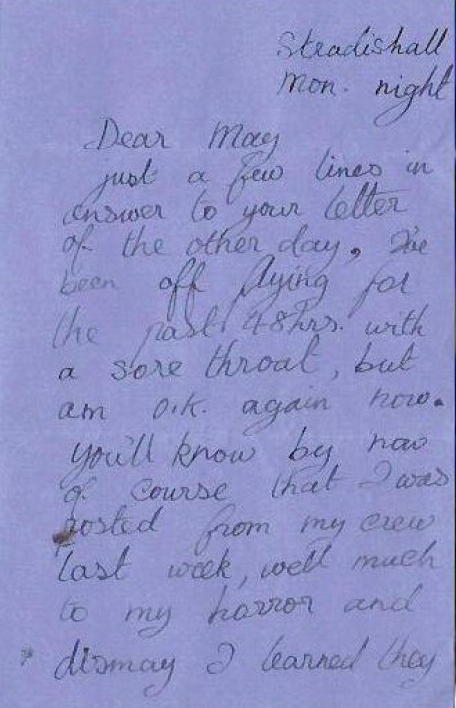 Steadishall
Mon. night
Dear May
just a few lines in
answer to your letter
of the other day, I've
been off flying for
the past 48hrs. with
a sore throat, but
am O.K. again now.
You'll know by now
of course that I was
posted from my crew
last week, well much
to my horror and
dismay I learned they